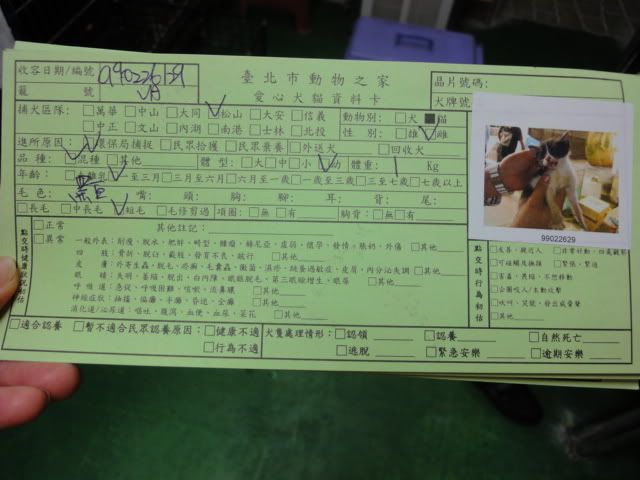 收容日期/編號 臺北市動物之家 晶片號碼:
籠號 愛心犬貓資料卡 犬牌號
捕犬區隊: □萬華 □中山 □大同 □松山 □大安 □信義 動物別: □犬 ■貓
□中正 □文山 □內湖 □南港 □士林 □北投 性別: □雄 □雌
進所原因: □環保局捕捉 □民眾拾獲 □民眾棄養 □外送犬 □回收犬
品種: □混種 □其他 體型: □大 □中 □小 □幼 體重: Kg
年齡: □離乳 □一至三月 □三月至六月 □六月至一歲 □一歲至三歲 □三至七歲 □七歲以上
毛色: 黑白 嘴: 頭: 胸: 腳: 耳: 背: 尾:
□長毛 □中長毛 □短毛 □毛修剪過 項圈: □無 □有 胸背: □無 □有
99022629
點交時健康狀況初估
□正常 其他註記:
□異常 一般外表: 削瘦、脫水、肥胖、畸型、腫瘤、赫尼亞、虛弱、懷孕、發情、脹奶、外傷 □其他
四肢: 骨折、脫臼、截肢、發育不良、跛行 □其他
皮膚: 外寄生蟲、脫毛、疥癬、毛囊蟲、黴菌、濕疹、跳蚤過敏症、皮屑、內分泌失調 □其他
眼睛: 失明、萎縮、脫出、白內障、眼瞼脫毛、第三眼瞼增生、眼屎 □其他
呼吸道: 急促、呼吸困難、咳嗽、流鼻膿 □其他
神經症狀: 抽搐、偏癱、半癱、昏迷、全癱 □其他
消化道/泌尿道: 嘔吐、腹瀉、血便、血尿、菜花 □其他
點交時行為初估
□友善、親近人 □非常好動、四處觀察
□可碰觸及撫摸 □緊張、緊迫
□害羞、畏縮、不想移動
□企圖咬人/主動攻擊
□吹叫、哭號、發出威脅聲
□其他
□適合認養 □暫不適合民眾認養原因: □健康不適 犬隻處理情形: □認領 □認養 □自然死亡
□行為不適 □逃脫 □緊急安樂 □逾期安樂